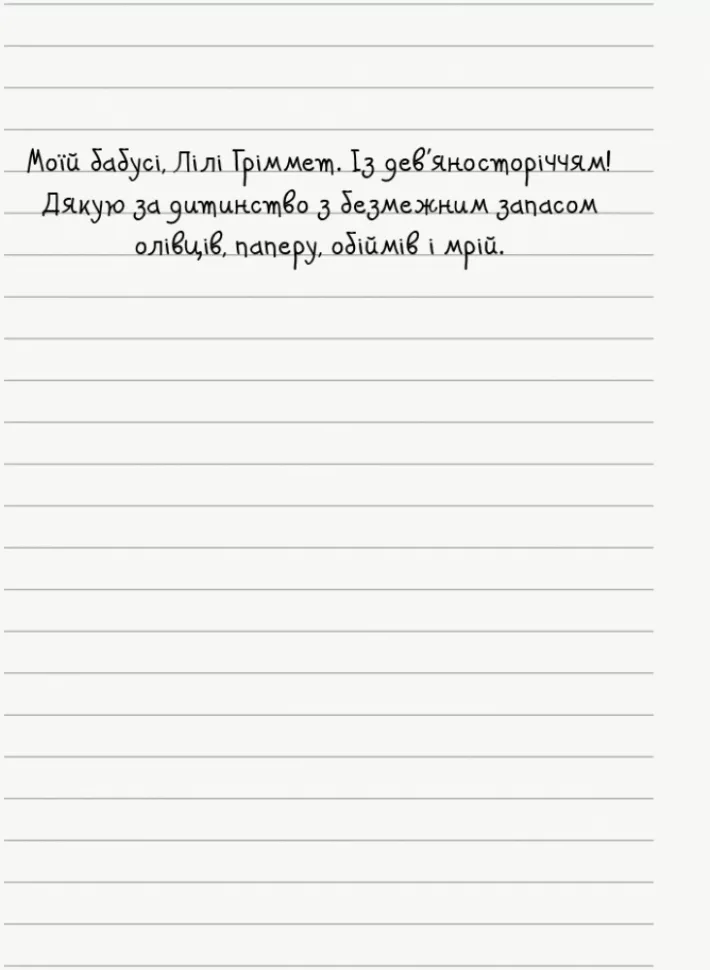 Моїй бабусі, Лілі Ґріммет. Із дев'яносторіччям!
Дякую за дитинство з безмежним запасом
олівців, паперу, обіймів і мрій.